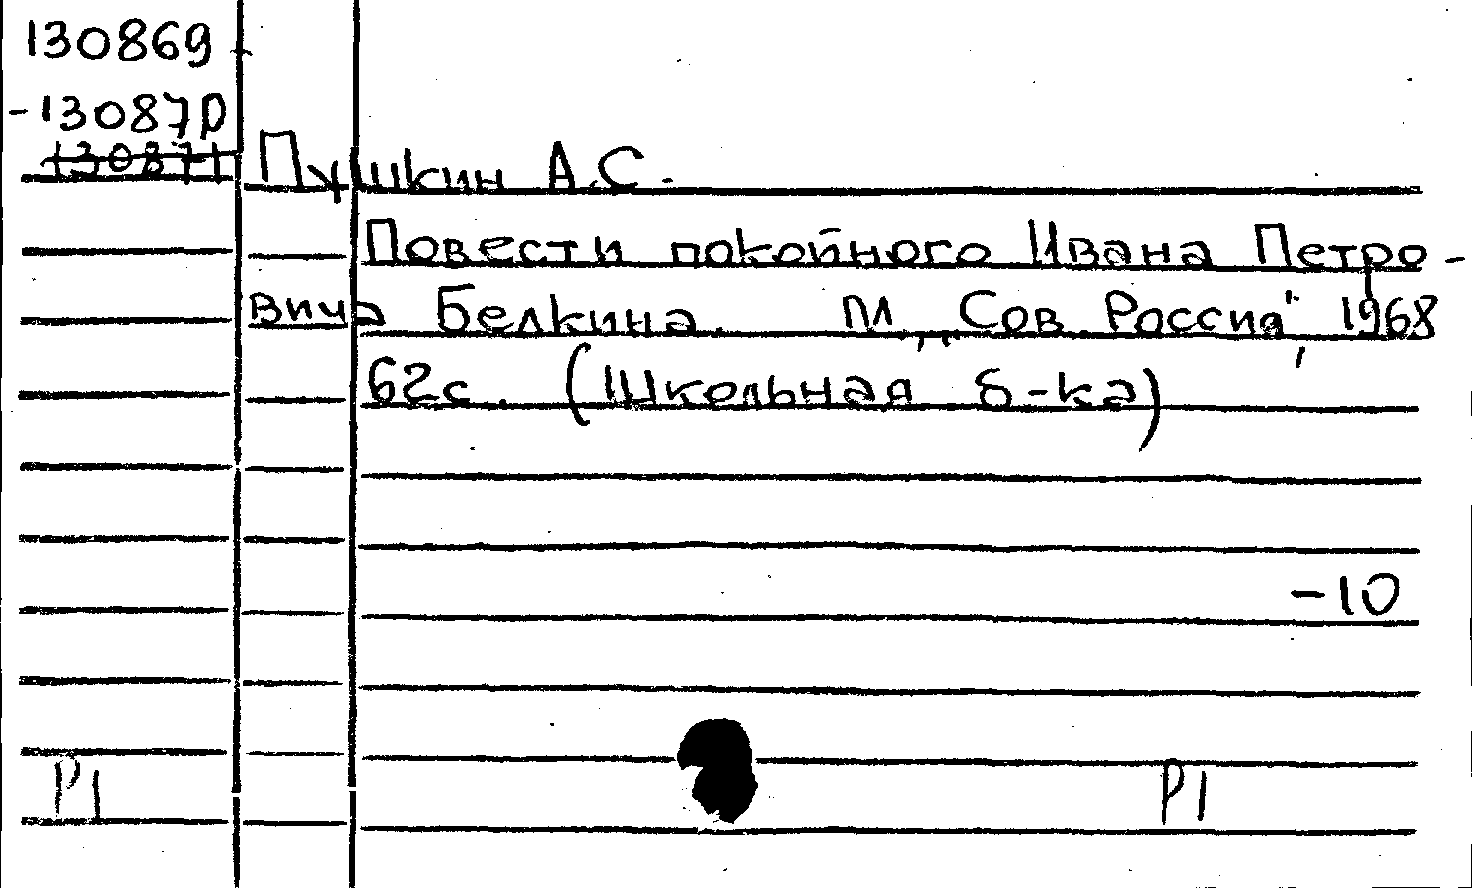 130869
-130870
130871
Пушкин А.С.
Повести покойного Ивана Петро-
вича Белкина. М., „Сов. Россия", 1968
62с. (Школьная б-ка)
-10
Р1 Р1